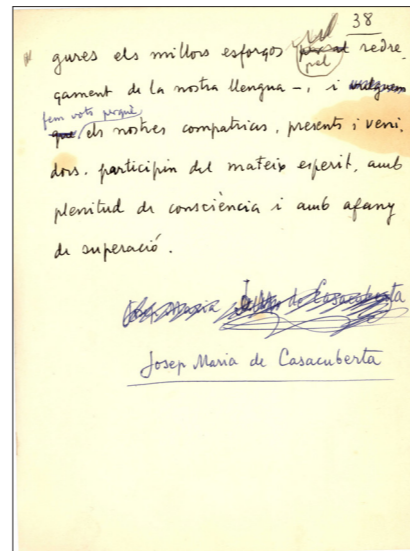 38
gures els millors esforços per al pel redre-
çament de la nostra llengua –, i vulguem
fem vots perquè
que els nostres compatricis, presents i veni-
dors, participin del mateix esperit, amb
plenitud de consciència i amb afany
de superació.
Josep Maria de Casacuberta
Josep Maria de Casacuberta